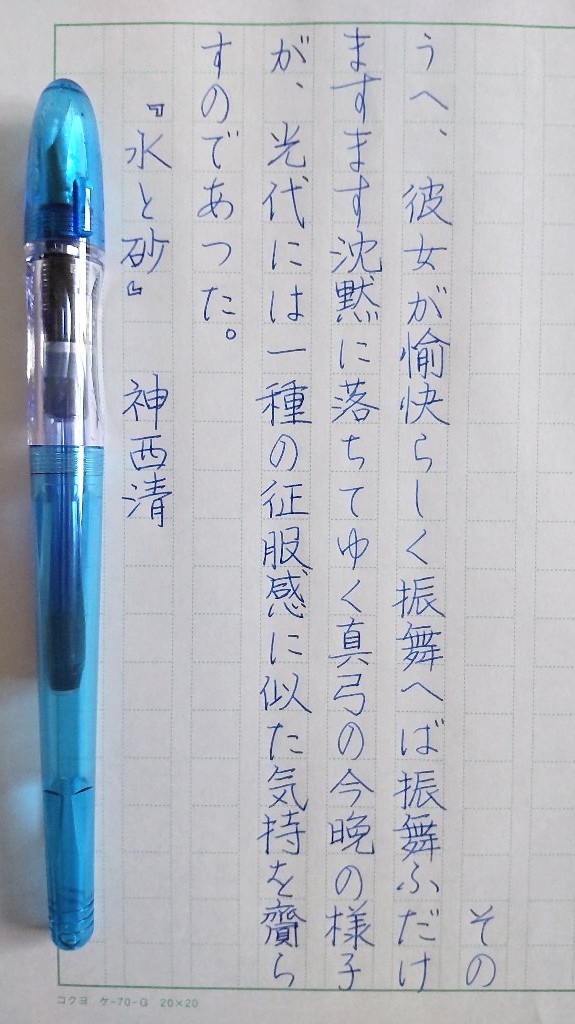 その
うへ、彼女が愉快らしく振舞へば振舞ふだけ
ますます沈黙に落ちてゆく真弓の今晩の様子
が、光代には一種の征服感に似た気持を齎ら
すのであつた。
『水と砂』 神西清
コクヨ ケ-70-G 20×20